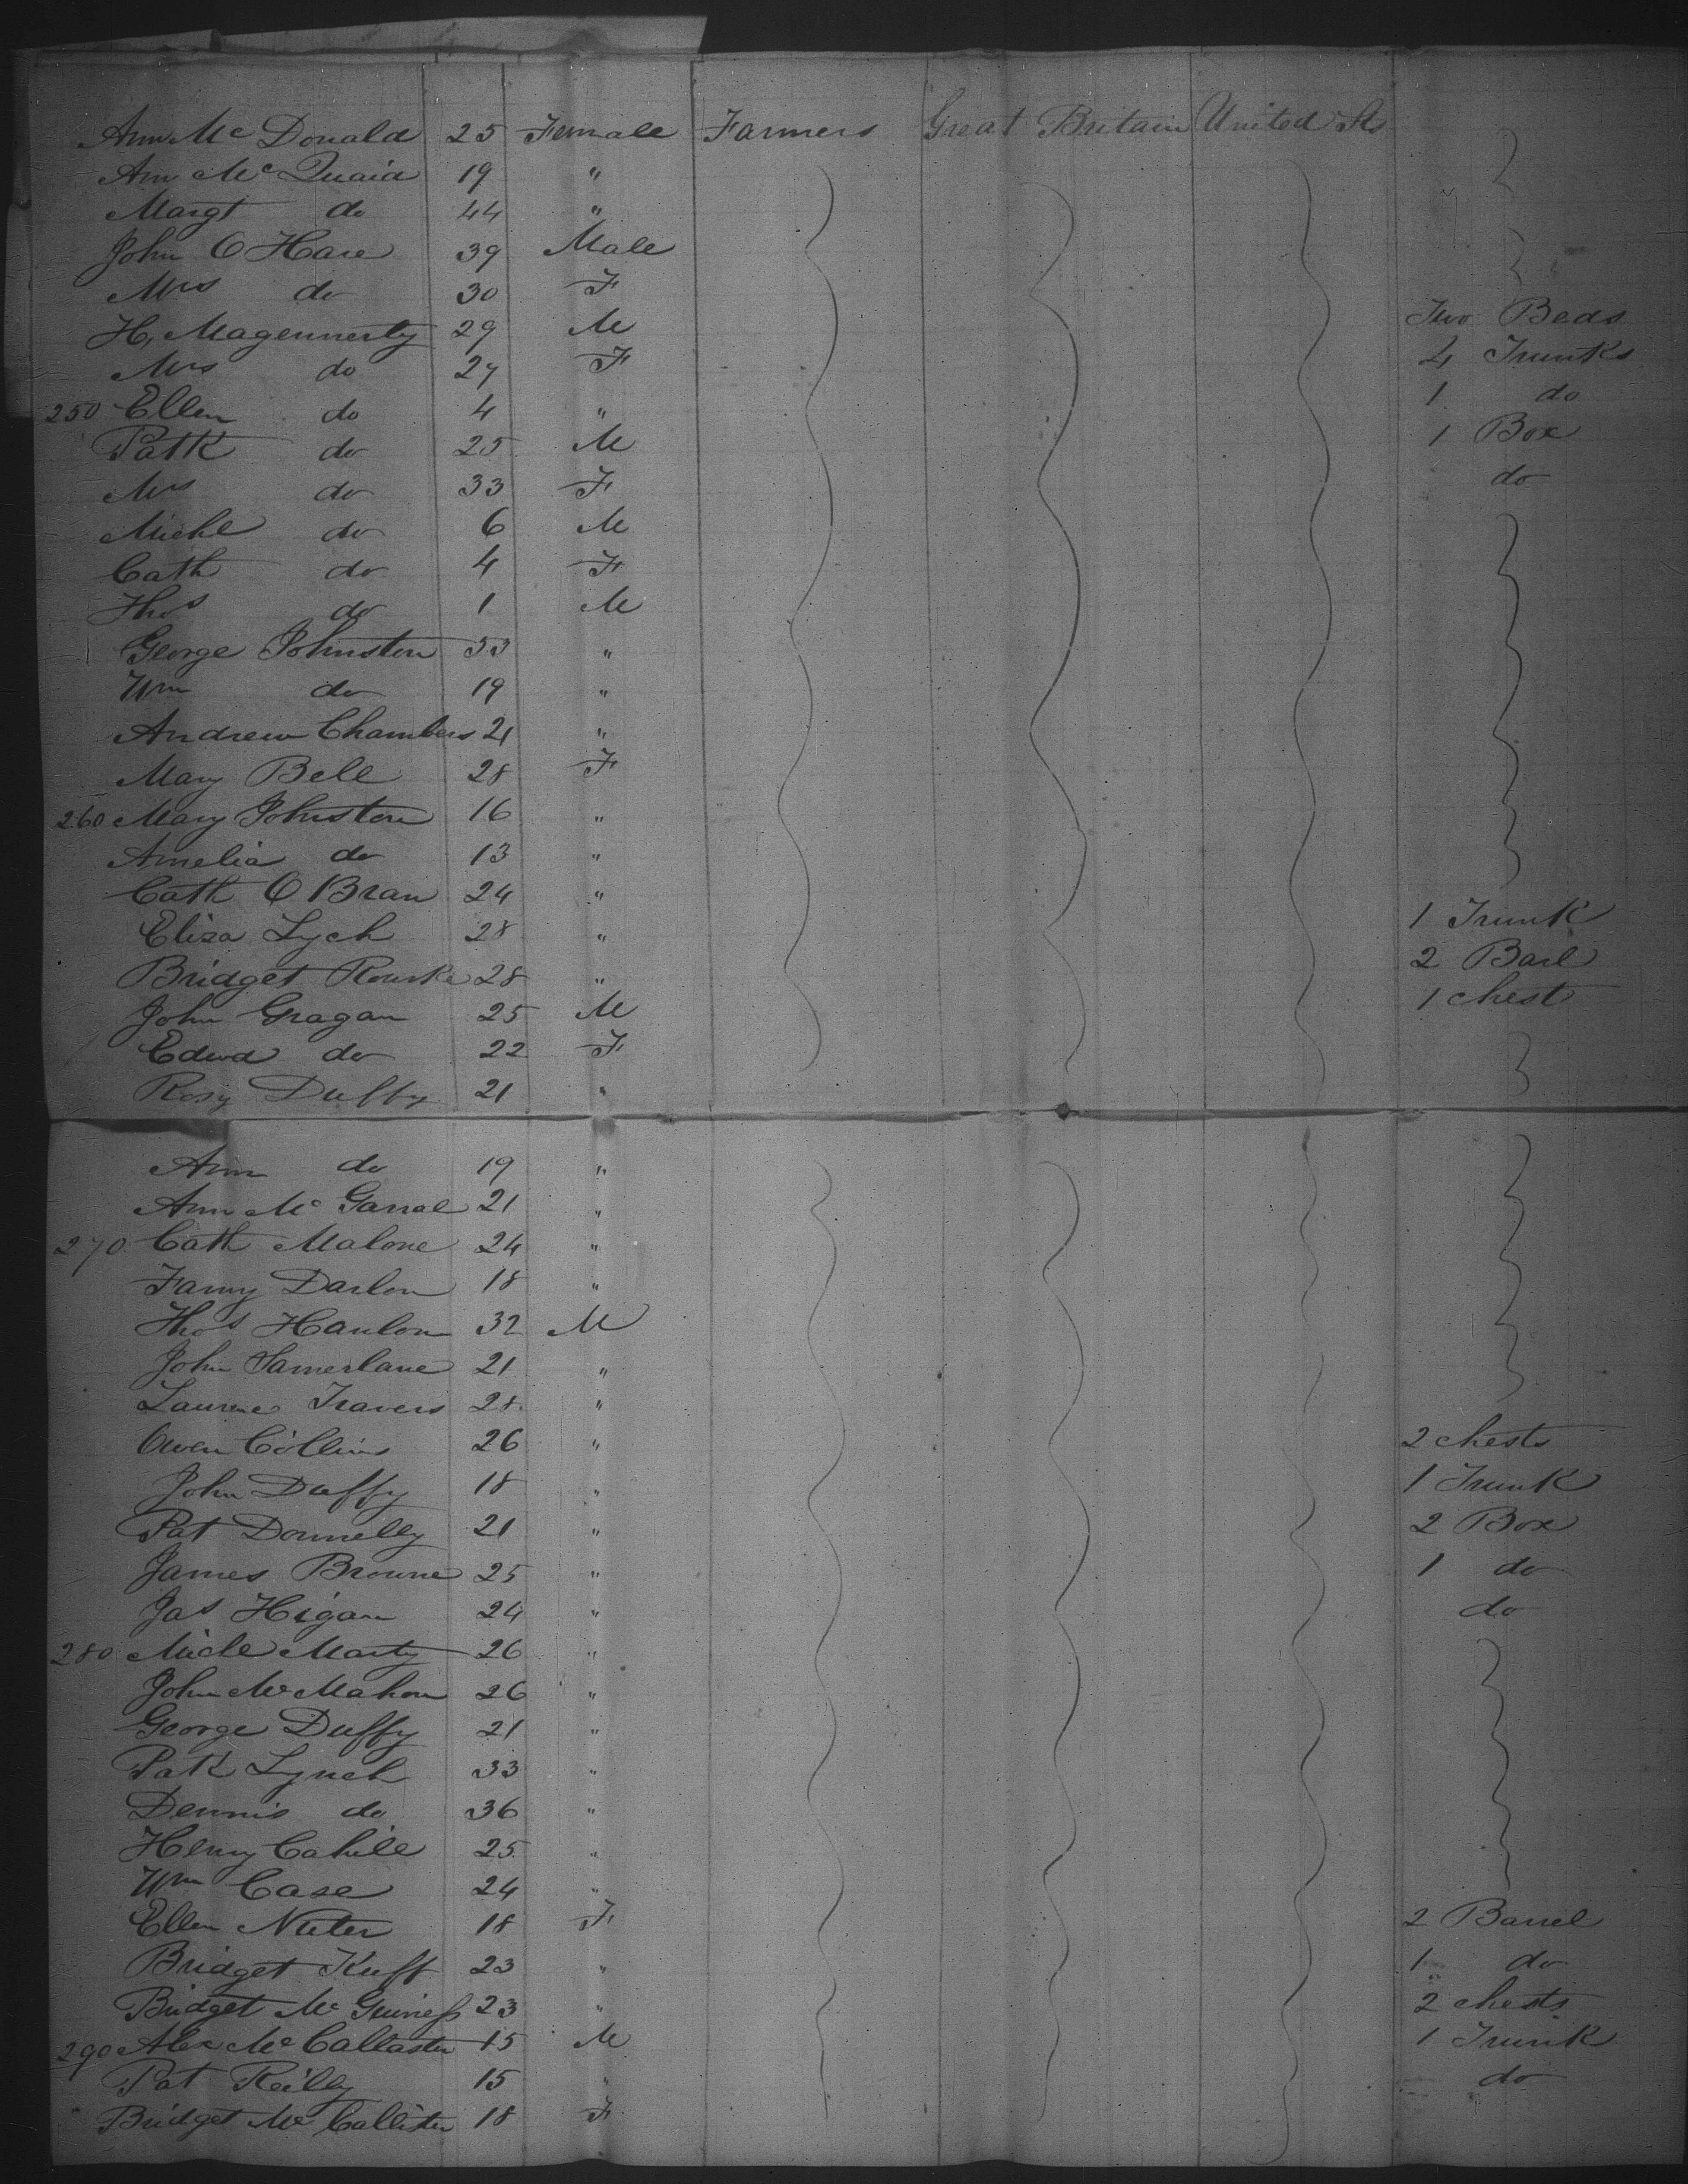 Ann Mc Donald 25 Female Farmers Great Britain United Sts
Ann Mc Quaid 19 "
Margt do 44 "
John O Hare 39 Male
Mrs do 30 F
H, Magennerty 29 M Two Beds
Mrs do 27 F 4 Trunks
250 Ellen do 4 " 1 do
Patk do 25 M 1 Box
Mrs do 33 F do
Michl do 6 M
Cath do 4 F
Thos do 1 M
George Johnston 53 "
Wm do 19 "
Andrew Chambers 21 "
Mary Bell 28 F
260 Mary Johnston 16 "
Amelia do 13 "
Cath O Bran 24 "
Eliza Lych 28 " 1 Trunk
Bridget Rourke 28 " 2 Barl
John Gragan 25 M 1 chest
Edwd do 22 F
Rosy Duffy 21 "
Ann do 19 "
Ann Mc Garral 21 "
270 Cath Malone 24 "
Fanny Darlon 18 "
Thos Hanlon 32 M
John Samerlane 21 "
Laurence Travers 28 "
Owen Collins 26 " 2 chests
John Duffy 18 " 1 Trunk
Pat Donnelly 21 " 2 Box
James Browne 25 " 1 do
Jas Higan 24 " do
280 Micle Marty 26 "
John Mc Mahon 26 "
George Duffy 21 "
Patk Lynch 33 "
Dennis do 36 "
Henry Cahill 25 "
Wm Case 24 "
Ellen Nuter 18 F 2 Barrel
Bridget Kuff 23 " 1 do
Bridget Mc Guiness 23 " 2 chests
290 Alex Mc Callaster 15 M 1 Trunk
Pat Reilly 15 " do
Bridget Mc Callister 18 F